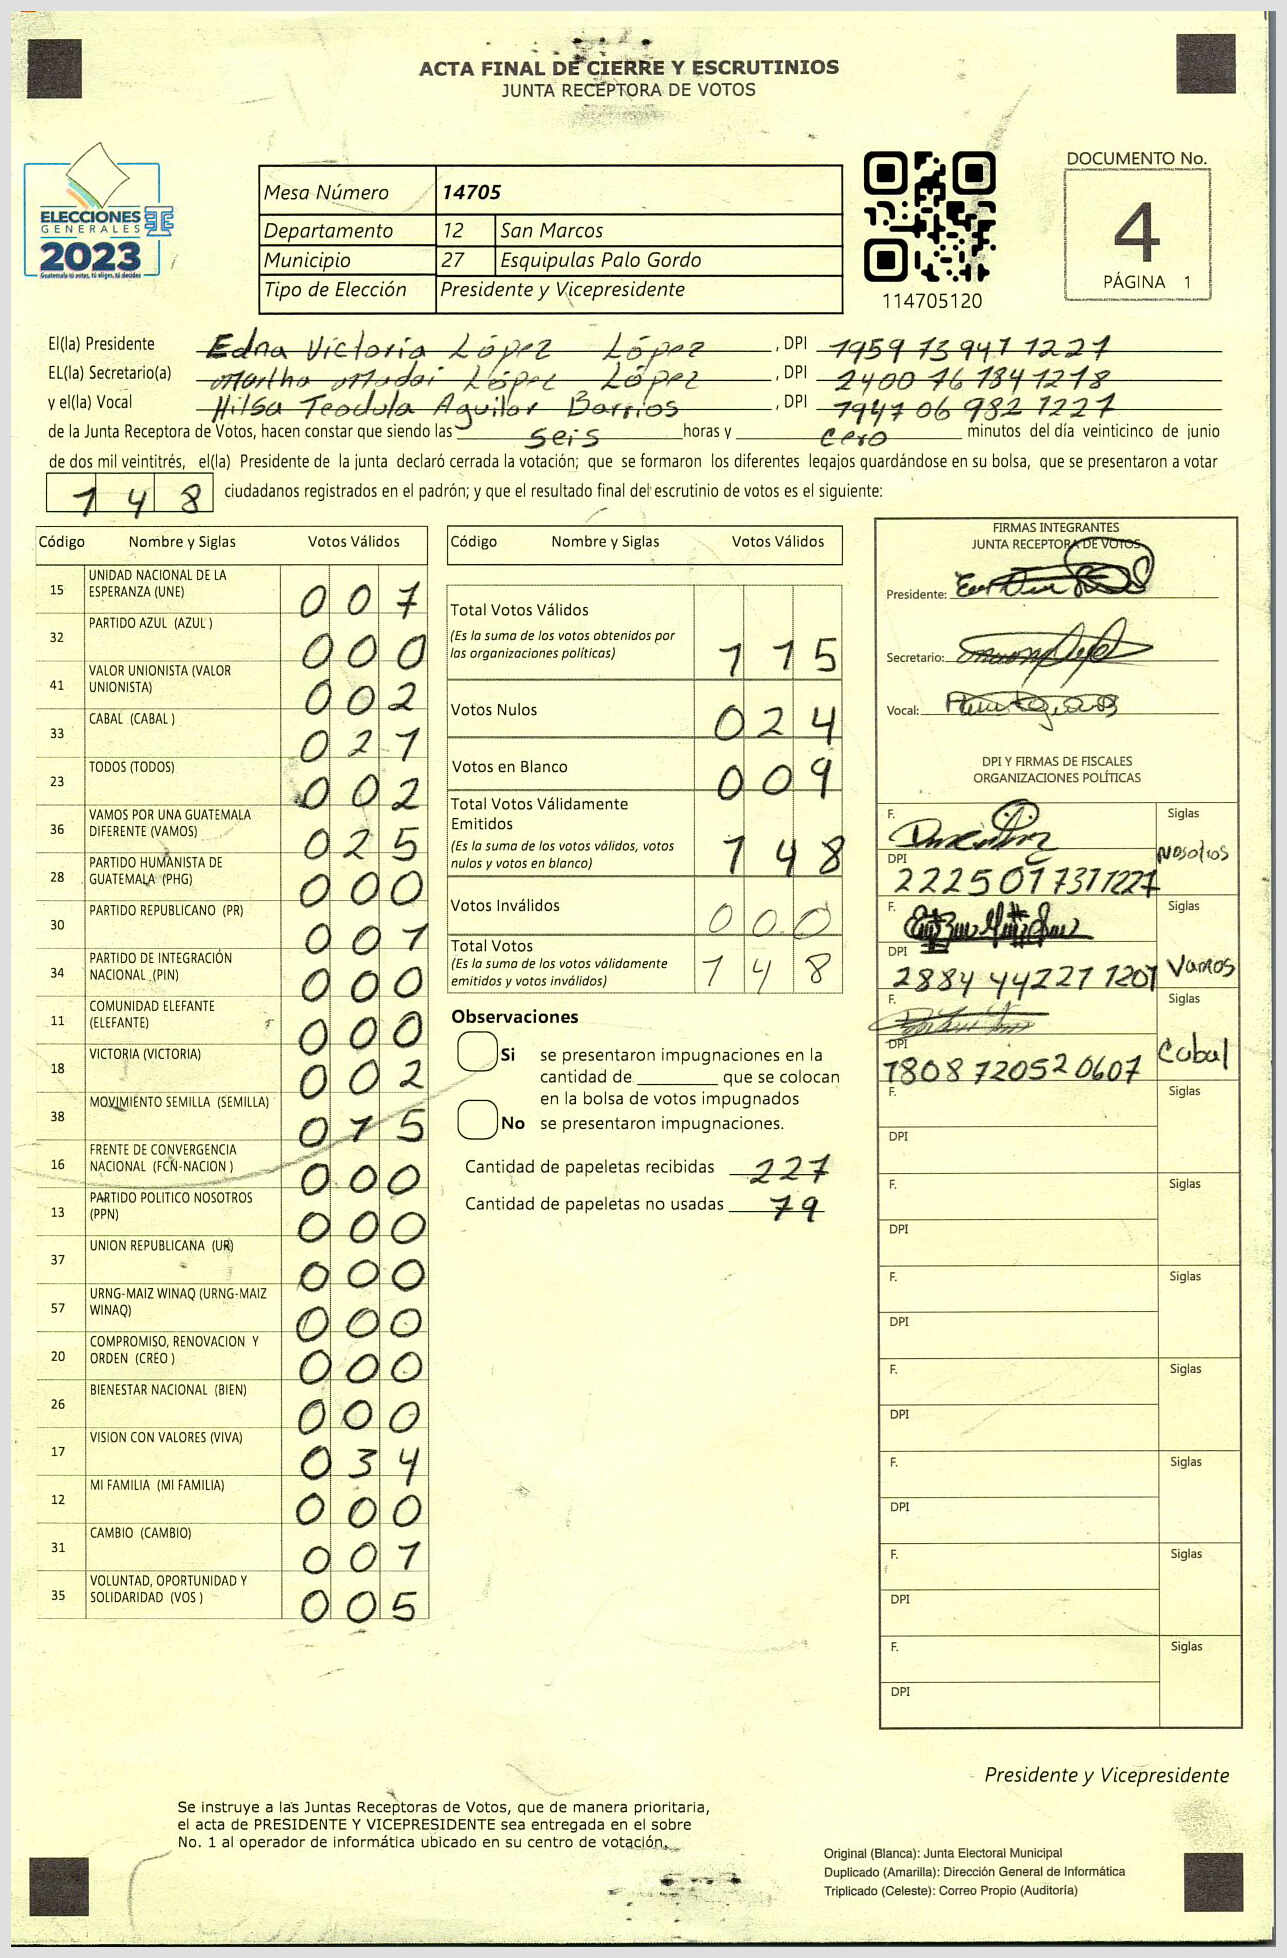 ACTA FINAL DE CIERRE Y ESCRUTINIOS
JUNTA RECEPTORA DE VOTOS
ELECCIONES
GENERALES
2023
Guatemala tú votas, tú eliges, tú decides
Mesa Número 14705
Departamento 12 San Marcos
Municipio 27 Esquipulas Palo Gordo
Tipo de Elección Presidente y Vicepresidente
114705120
DOCUMENTO No.
4
PÁGINA 1
El(la) Presidente Edna Victoria López López , DPI 1959 73947 1227
EL(la) Secretario(a) Martha Madai López López , DPI 2400 76184 1218
y el(la) Vocal Hilsa Teodula Aguilar Barrios , DPI 1947 06 982 1227
de la Junta Receptora de Votos, hacen constar que siendo las seis horas y cero minutos del día veinticinco de junio
de dos mil veintitrés, el(la) Presidente de la junta declaró cerrada la votación; que se formaron los diferentes legajos guardándose en su bolsa, que se presentaron a votar
1 4 8 ciudadanos registrados en el padrón; y que el resultado final del escrutinio de votos es el siguiente:
Código Nombre y Siglas Votos Válidos
15 UNIDAD NACIONAL DE LA ESPERANZA (UNE) 0 0 7
32 PARTIDO AZUL (AZUL ) 0 0 0
41 VALOR UNIONISTA (VALOR UNIONISTA) 0 0 2
33 CABAL (CABAL ) 0 2 1
23 TODOS (TODOS) 0 0 2
36 VAMOS POR UNA GUATEMALA DIFERENTE (VAMOS) 0 2 5
28 PARTIDO HUMANISTA DE GUATEMALA (PHG) 0 0 0
30 PARTIDO REPUBLICANO (PR) 0 0 1
34 PARTIDO DE INTEGRACIÓN NACIONAL (PIN) 0 0 0
11 COMUNIDAD ELEFANTE (ELEFANTE) 0 0 0
18 VICTORIA (VICTORIA) 0 0 2
38 MOVIMIENTO SEMILLA (SEMILLA) 0 1 5
16 FRENTE DE CONVERGENCIA NACIONAL (FCN-NACION ) 0 0 0
13 PARTIDO POLITICO NOSOTROS (PPN) 0 0 0
37 UNION REPUBLICANA (UR) 0 0 0
57 URNG-MAIZ WINAQ (URNG-MAIZ WINAQ) 0 0 0
20 COMPROMISO, RENOVACION Y ORDEN (CREO ) 0 0 0
26 BIENESTAR NACIONAL (BIEN) 0 0 0
17 VISION CON VALORES (VIVA) 0 3 4
12 MI FAMILIA (MI FAMILIA) 0 0 0
31 CAMBIO (CAMBIO) 0 0 1
35 VOLUNTAD, OPORTUNIDAD Y SOLIDARIDAD (VOS ) 0 0 5
Código Nombre y Siglas Votos Válidos
Total Votos Válidos 1 1 5
(Es la suma de los votos obtenidos por
las organizaciones políticas)
Votos Nulos 0 2 4
Votos en Blanco 0 0 9
Total Votos Válidamente
Emitidos 1 4 8
(Es la suma de los votos válidos, votos
nulos y votos en blanco)
Votos Inválidos 0 0 0
Total Votos 1 4 8
(Es la suma de los votos válidamente
emitidos y votos inválidos)
Observaciones
Si se presentaron impugnaciones en la
cantidad de ________ que se colocan
en la bolsa de votos impugnados
No se presentaron impugnaciones.
Cantidad de papeletas recibidas 227
Cantidad de papeletas no usadas 79
FIRMAS INTEGRANTES
JUNTA RECEPTORA DE VOTOS
Presidente:
Secretario:
Vocal:
DPI Y FIRMAS DE FISCALES
ORGANIZACIONES POLÍTICAS
F. Siglas
Nosotros
DPI 2225017311227
F. Siglas
DPI 2884 44227 1201 Vamos
F. Siglas
DPI 1808 72052 0607 Cabal
F. Siglas
DPI
F. Siglas
DPI
F. Siglas
DPI
F. Siglas
DPI
F. Siglas
DPI
F. Siglas
DPI
F. Siglas
DPI
Presidente y Vicepresidente
Se instruye a las Juntas Receptoras de Votos, que de manera prioritaria,
el acta de PRESIDENTE Y VICEPRESIDENTE sea entregada en el sobre
No. 1 al operador de informática ubicado en su centro de votación.
Original (Blanca): Junta Electoral Municipal
Duplicado (Amarilla): Dirección General de Informática
Triplicado (Celeste): Correo Propio (Auditoría)